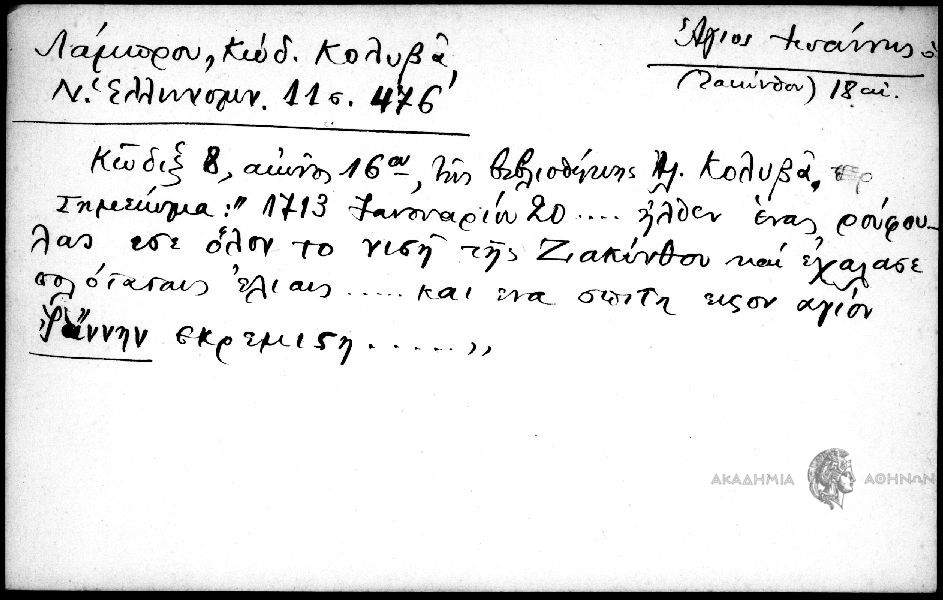 Λάμπρου, Κώδ. Κολυβᾶ,
Ν. Ἑλληνομν. 11 σ. 476
Ἅγιος Ἰωάννης ὁ
(Ζακύνθου) 18 αἰ.
Κῶδιξ 8, αἰῶνος 16ου, τῆς βιβλιοθήκης Ἀ. Κολυβᾶ,
Σημείωμα: " 1713 Ἰανουαρίου 20 .... ἦλθεν ἕνας ρούφου-
λας εσε ὅλον το νισῆ τῆς Ζακύνθου καί ἐχάλασε
πολότατais ἐλιαις ..... και ενα σπιτη εις τον αγιόν
Ἰωάννην εκρεμιση ...... "
ΑΚΑΔΗΜΙΑ ΑΘΗΝΩΝ